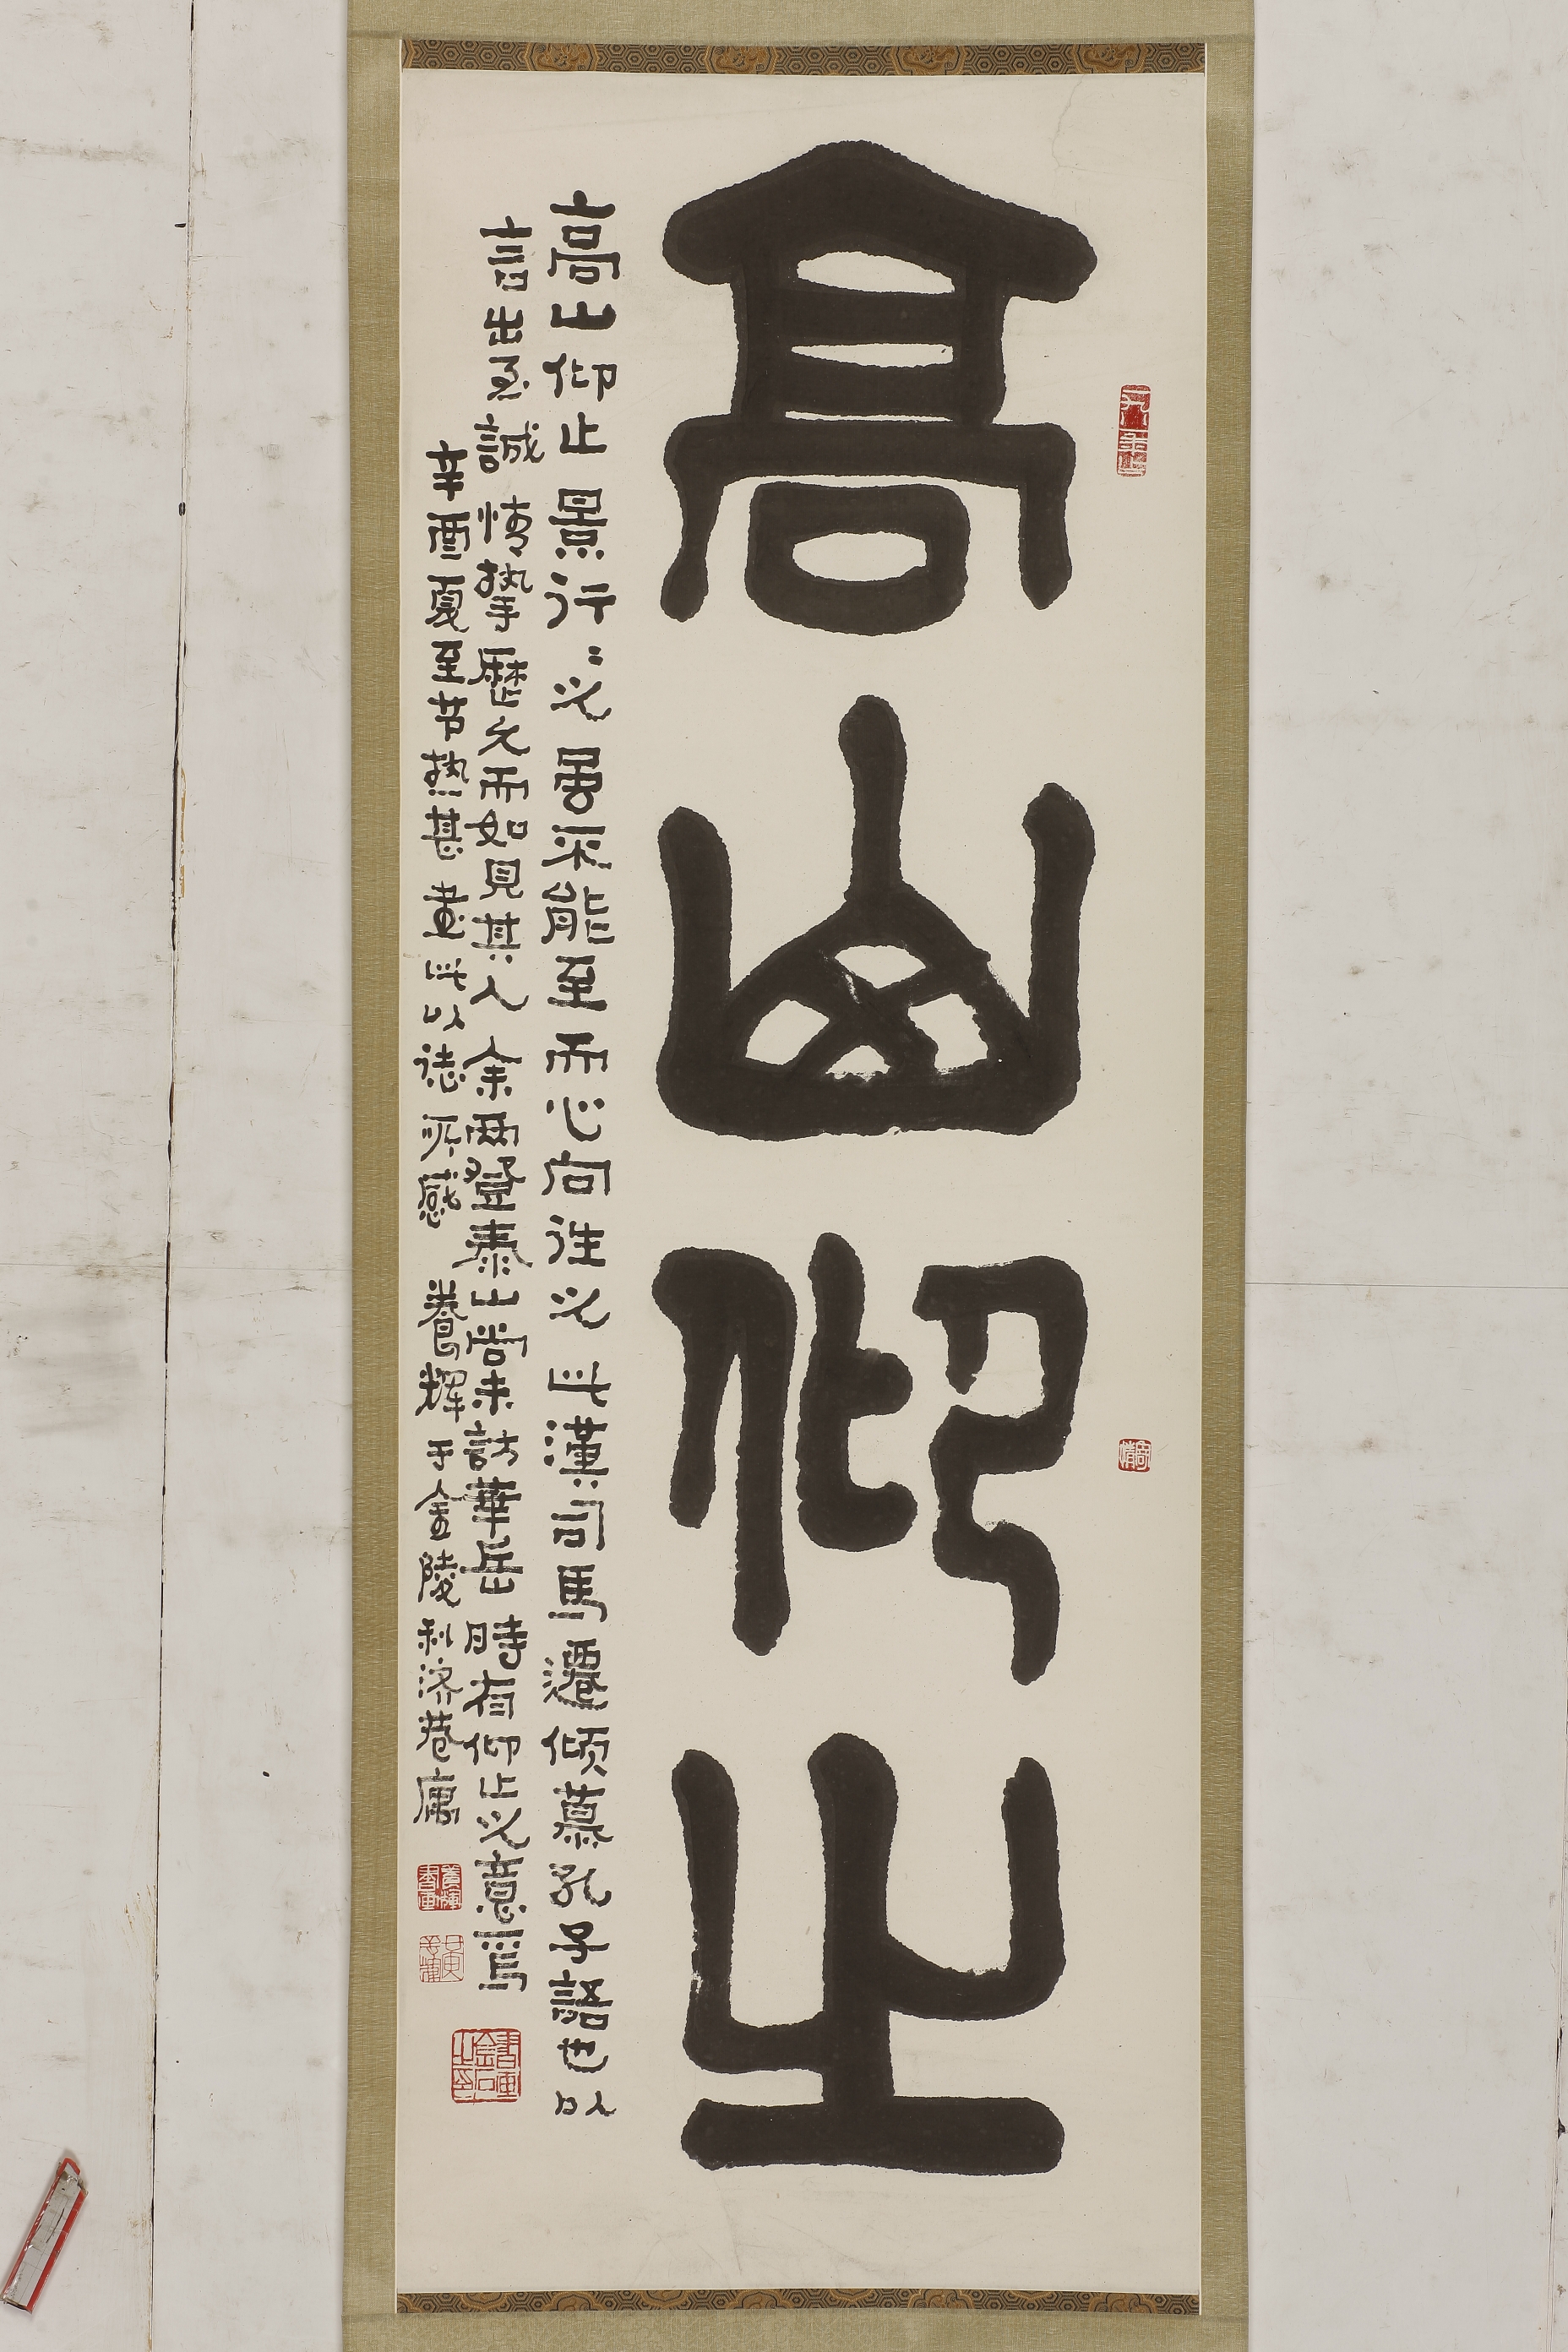 高山仰止
高山仰止景行〻之虽不能至而心向往之此漢司馬遷倾慕孔子語也以
言出至誠情摯歷久而如見其人余兩登泰山尚未訪華岳時有仰止之意焉
辛酉夏至节热甚書此以誌所感 養輝于金陵利济巷寓
養輝書畫
黄養輝